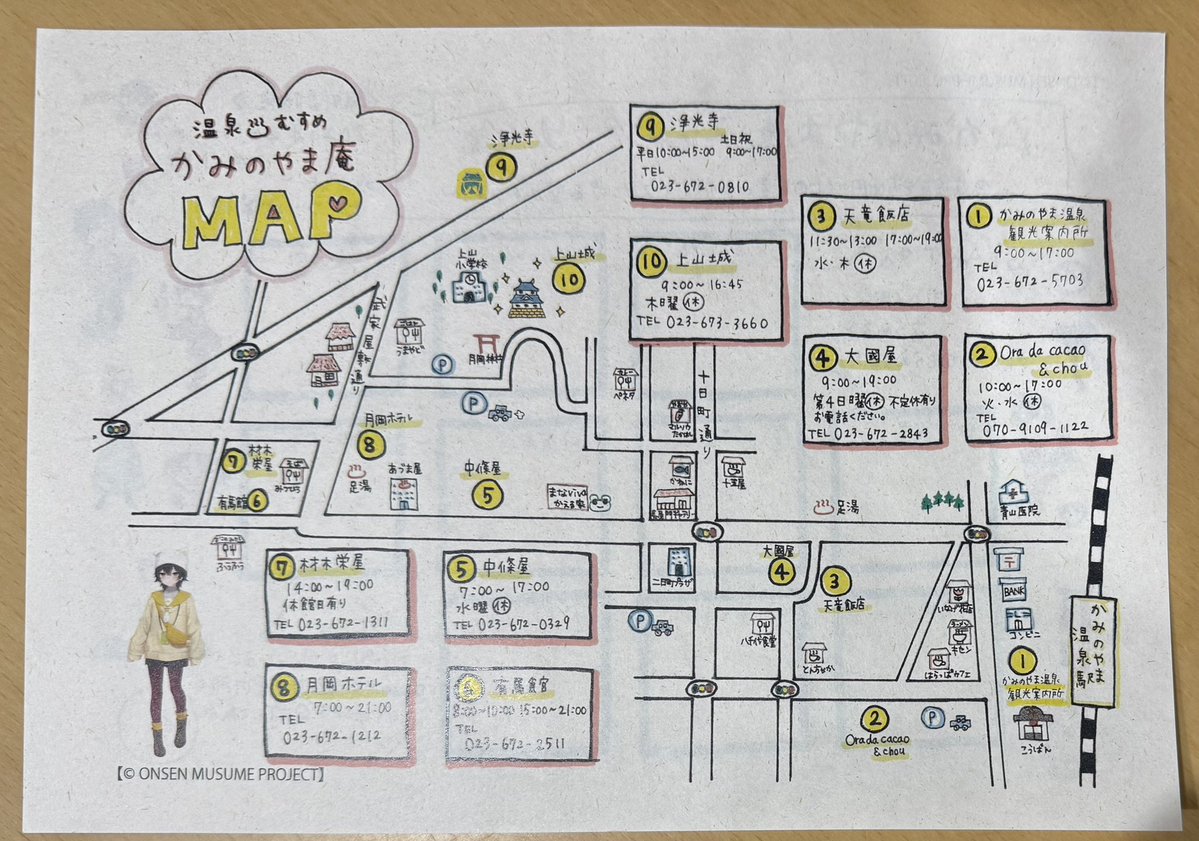 温泉♨むすめ
かみのやま庵
MAP
浄光寺
9
9 浄光寺
平日10:00~15:00 土日祝 9:00~17:00
TEL
023-672-0810
3 天竜飯店
11:30~13:00 17:00~19:00
水・木 休
1 かみのやま温泉
観光案内所
9:00~17:00
TEL
023-672-5703
10 上山城
9:00~16:45
木曜 休
TEL 023-673-3660
4 大國屋
9:00~19:00
第4日曜 休 不定休有り
お電話ください。
TEL 023-672-2843
2 Ora da cacao
& chou
10:00~17:00
火・水 休
TEL
070-9109-1122
上山
小学校
上山城
10
武家屋敷通り
うまやど
月岡神社
P
P
ペネタ
十日町通り
月岡ホテル
8
7 材木
栄屋
有馬館 6
足湯
あづま屋
中條屋
5
まなviva
かえる家
かねに
十五屋
足湯
青山医院
二日町プラザ
大國屋
4
3
天竜飯店
〒
BANK
コンビニ
P
八千代食堂
とんちゃか
キセン
はらっぱカフェ
1
かみのやま温泉
観光案内所
こうばん
かみのやま
温泉駅
2
Ora da cacao
& chou
P
ふうりゅう
7 材木栄屋
14:00~19:00
休館日有り
TEL 023-672-1311
5 中條屋
7:00~17:00
水曜 休
TEL 023-672-0329
8 月岡ホテル
7:00~21:00
TEL
023-672-1212
6 有馬館
8:00~10:00 15:00~21:00
TEL
023-672-2511
【© ONSEN MUSUME PROJECT】